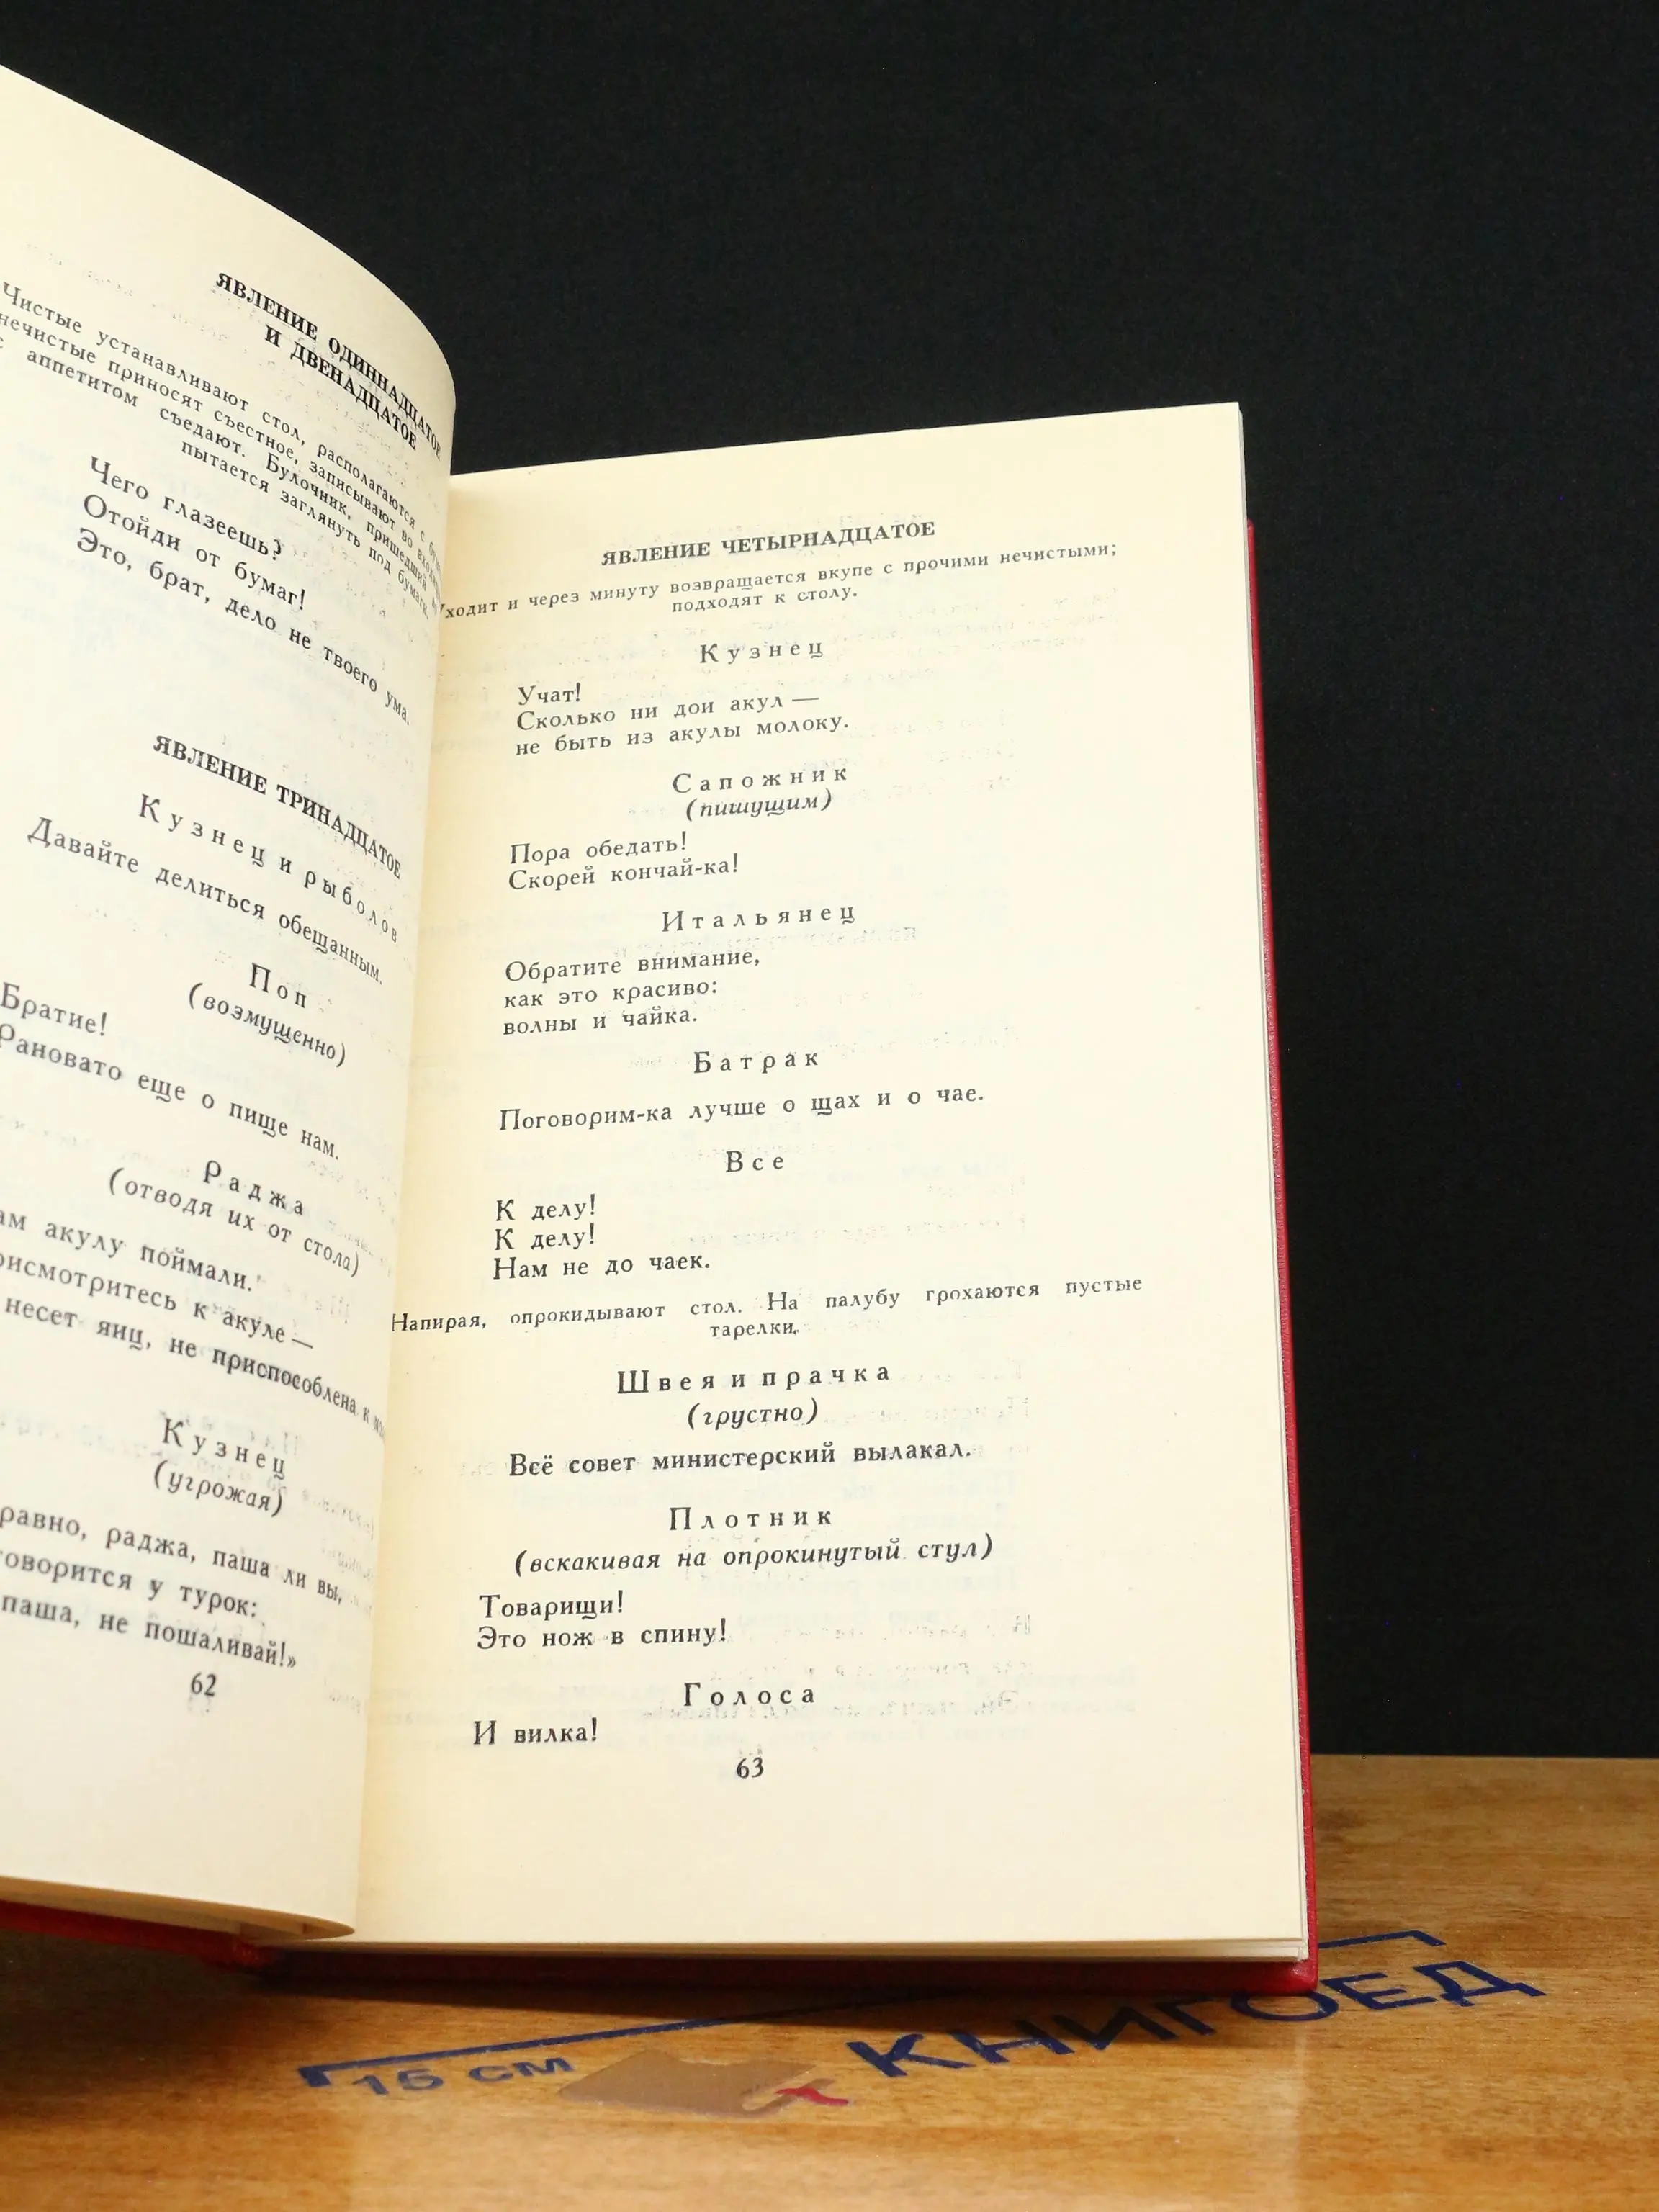 ЯВЛЕНИЕ ОДИННАДЦАТОЕ
И ДВЕНАДЦАТОЕ
Чистые устанавливают стол, располагаются с
нечистые приносят съестное, записывают во
аппетитом съедают. Булочник, пришедший
пытается заглянуть под бумаги.
Чего глазеешь?
Отойди от бумаг!
Это, брат, дело не твоего ума.
ЯВЛЕНИЕ ТРИНАДЦАТОЕ
Кузнец и рыболов
Давайте делиться обещанным.
Поп
(возмущенно)
Братие!
Рановато еще о пище нам.
Раджа
(отводя их от стола)
акулу поймали.
к акуле —
несет яиц, не приспособлена к
Кузнец
(угрожая)
равно, раджа, паша ли вы,
у турок:
паша, не пошаливай!»
62
ЯВЛЕНИЕ ЧЕТЫРНАДЦАТОЕ
Уходит и через минуту возвращается вкупе с прочими нечистыми;
подходят к столу.
Кузнец
Учат!
Сколько ни дои акул —
не быть из акулы молоку.
Сапожник
(пишущим)
Пора обедать!
Скорей кончай-ка!
Итальянец
Обратите внимание,
как это красиво:
волны и чайка.
Батрак
Поговорим-ка лучше о щах и о чае.
Все
К делу!
К делу!
Нам не до чаек.
Напирая, опрокидывают стол. На палубу грохаются пустые
тарелки.
Швея и прачка
(грустно)
Всё совет министерский вылакал.
Плотник
(вскакивая на опрокинутый стул)
Товарищи!
Это нож в спину!
Голоса
И вилка!
63
15 СМ
КНИГОЕД